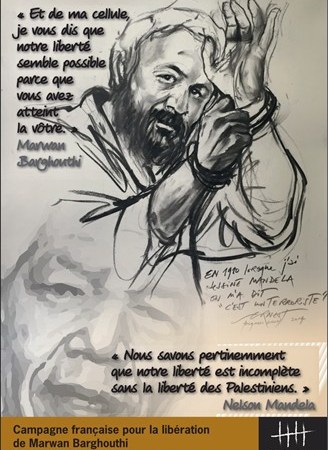 « Et de ma cellule,
je vous dis que
notre liberté
semble possible
parce que
vous avez
atteint
la vôtre. »
Marwan
Barghouthi
EN 1980 lorsque j'ai
DESSINÉ MANDELA
ON M'A DIT
"C'EST UN TERRORISTE"
ERNEST
« Nous savons pertinemment
que notre liberté est incomplète
sans la liberté des Palestiniens. »
Nelson Mandela
Campagne française pour la libération
de Marwan Barghouthi